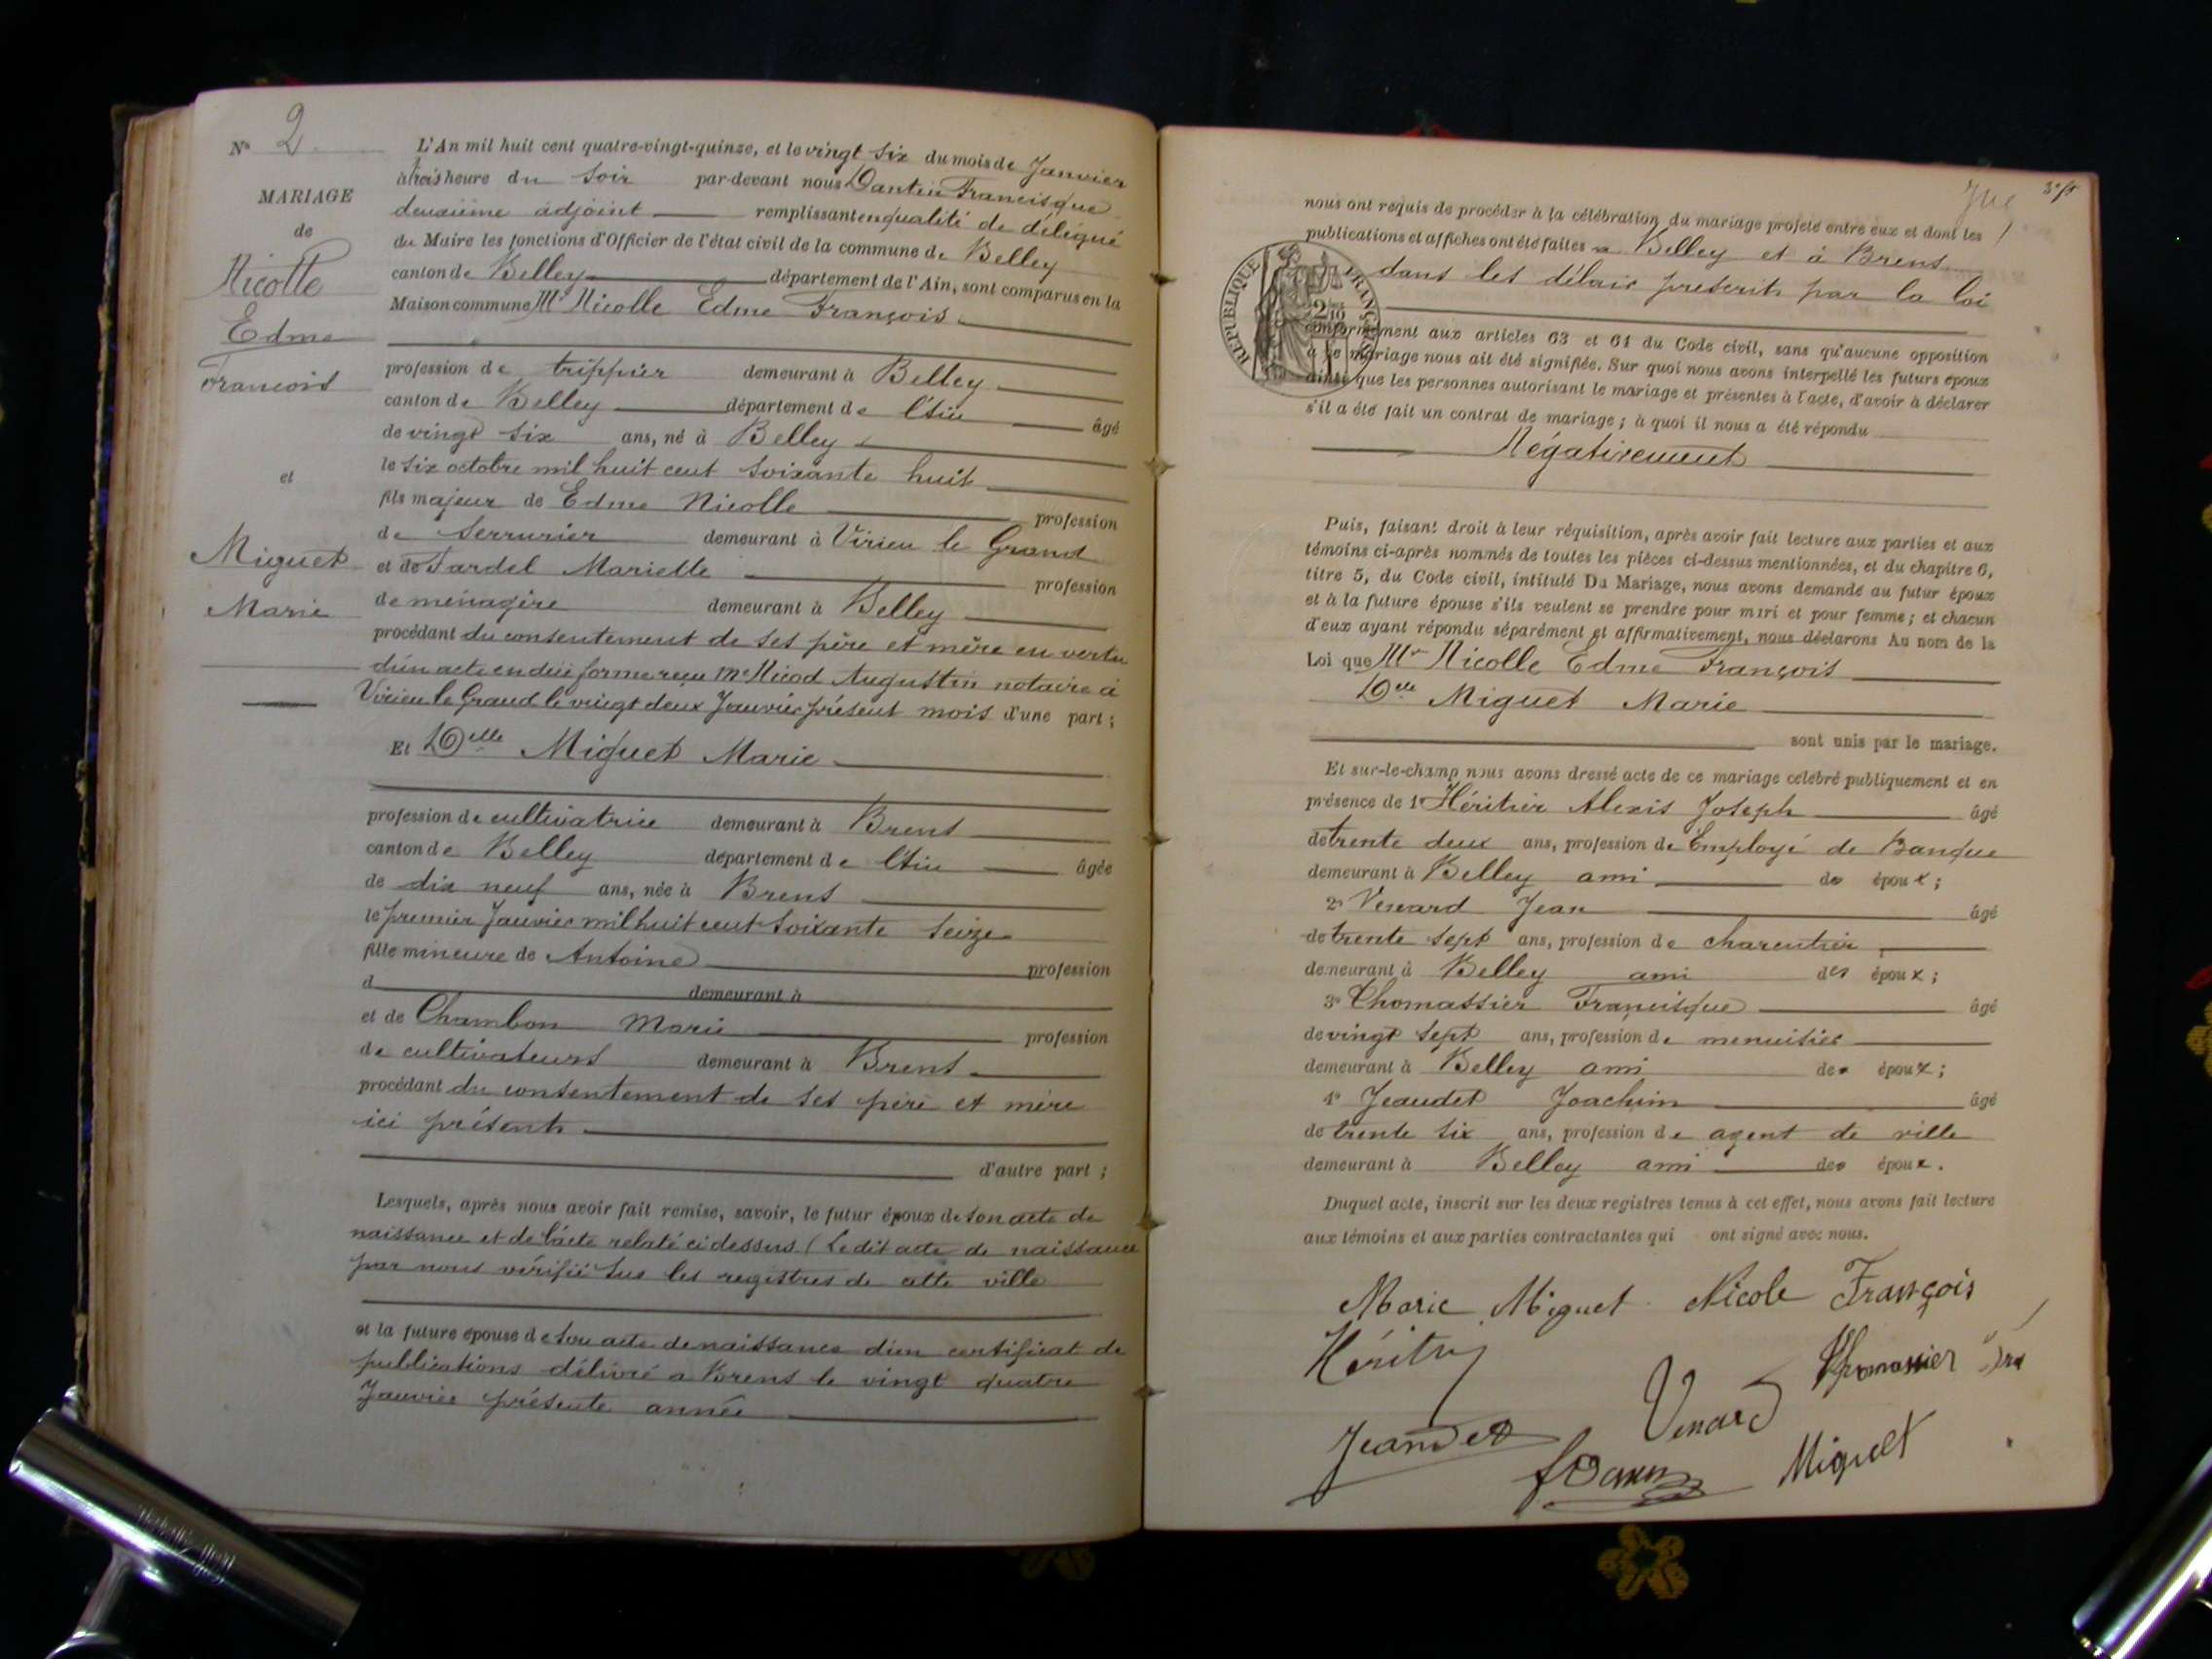 N° 2
MARIAGE
de
Nicolle
Edme
François
et
Miguet
Marie
L'An mil huit cent quatre-vingt-quinze, et le vingt six du mois de Janvier
à trois heure du soir par-devant nous Dantin Francisque
deuxième adjoint remplissant en qualité de délégué
du Maire les fonctions d'Officier de l'état civil de la commune de Belley
canton de Belley département de l'Ain, sont comparus en la
Maison commune Mr Nicolle Edme François
profession de trippier demeurant à Belley
canton de Belley département de l'Ain âgé
de vingt six ans, né à Belley
le six octobre mil huit cent soixante huit
fils majeur de Edme Nicolle profession
de serrurier demeurant à Virieu le Grand
et de Tardel Mariette profession
de ménagère demeurant à Belley
procédant du consentement de ses père et mère en vertu
d'un acte en due forme reçu Me Nicod Augustin notaire à
Virieu le Grand le vingt deux Janvier présent mois d'une part ;
Et Delle Miguet Marie
profession de cultivatrice demeurant à Brens
canton de Belley département de l'Ain âgée
de dix neuf ans, née à Brens
le premier Janvier mil huit cent soixante seize
fille mineure de Antoine profession
d demeurant à
et de Chambon Marie profession
de cultivateurs demeurant à Brens
procédant du consentement de ses père et mère
ici présents
d'autre part ;
Lesquels, après nous avoir fait remise, savoir, le futur époux de son acte de
naissance et de l'acte relaté ci dessus (Ledit acte de naissance
par nous vérifié sur les registres de cette ville
et la future épouse de son acte de naissance d'un certificat de
publications délivré a Brens le vingt quatre
Janvier présente année
nous ont requis de procéder à la célébration du mariage projeté entre eux et dont les
publications et affiches ont été faites a Belley et à Brens
dans les délais prescrits par la loi
RÉPUBLIQUE FRANÇAISE
conformément aux articles 63 et 64 du Code civil, sans qu'aucune opposition
à ce mariage nous ait été signifiée. Sur quoi nous avons interpellé les futurs époux
ainsi que les personnes autorisant le mariage et présentes à l'acte, d'avoir à déclarer
s'il a été fait un contrat de mariage ; à quoi il nous a été répondu
Négativement
Puis, faisant droit à leur réquisition, après avoir fait lecture aux parties et aux
témoins ci-après nommés de toutes les pièces ci-dessus mentionnées, et du chapitre 6,
titre 5, du Code civil, intitulé Du Mariage, nous avons demandé au futur époux
et à la future épouse s'ils veulent se prendre pour mari et pour femme ; et chacun
d'eux ayant répondu séparément et affirmativement, nous déclarons Au nom de la
Loi que Mr Nicolle Edme François
Delle Miguet Marie
sont unis par le mariage.
Et sur-le-champ nous avons dressé acte de ce mariage célébré publiquement et en
présence de 1° Héritier Alexis Joseph âgé
de trente deux ans, profession de Employé de Banque
demeurant à Belley ami des époux ;
2° Venard Jean âgé
de trente sept ans, profession de charcutier
demeurant à Belley ami des époux ;
3° Thomassier Francisque âgé
de vingt sept ans, profession de menuisier
demeurant à Belley ami des époux ;
4° Jeaudet Joachim âgé
de trente six ans, profession de agent de ville
demeurant à Belley ami des époux.
Duquel acte, inscrit sur les deux registres tenus à cet effet, nous avons fait lecture
aux témoins et aux parties contractantes qui ont signé avec nous.
Marie Miguet Nicole François
Héritier
Venard Thomassier
Jeandet
Miguet